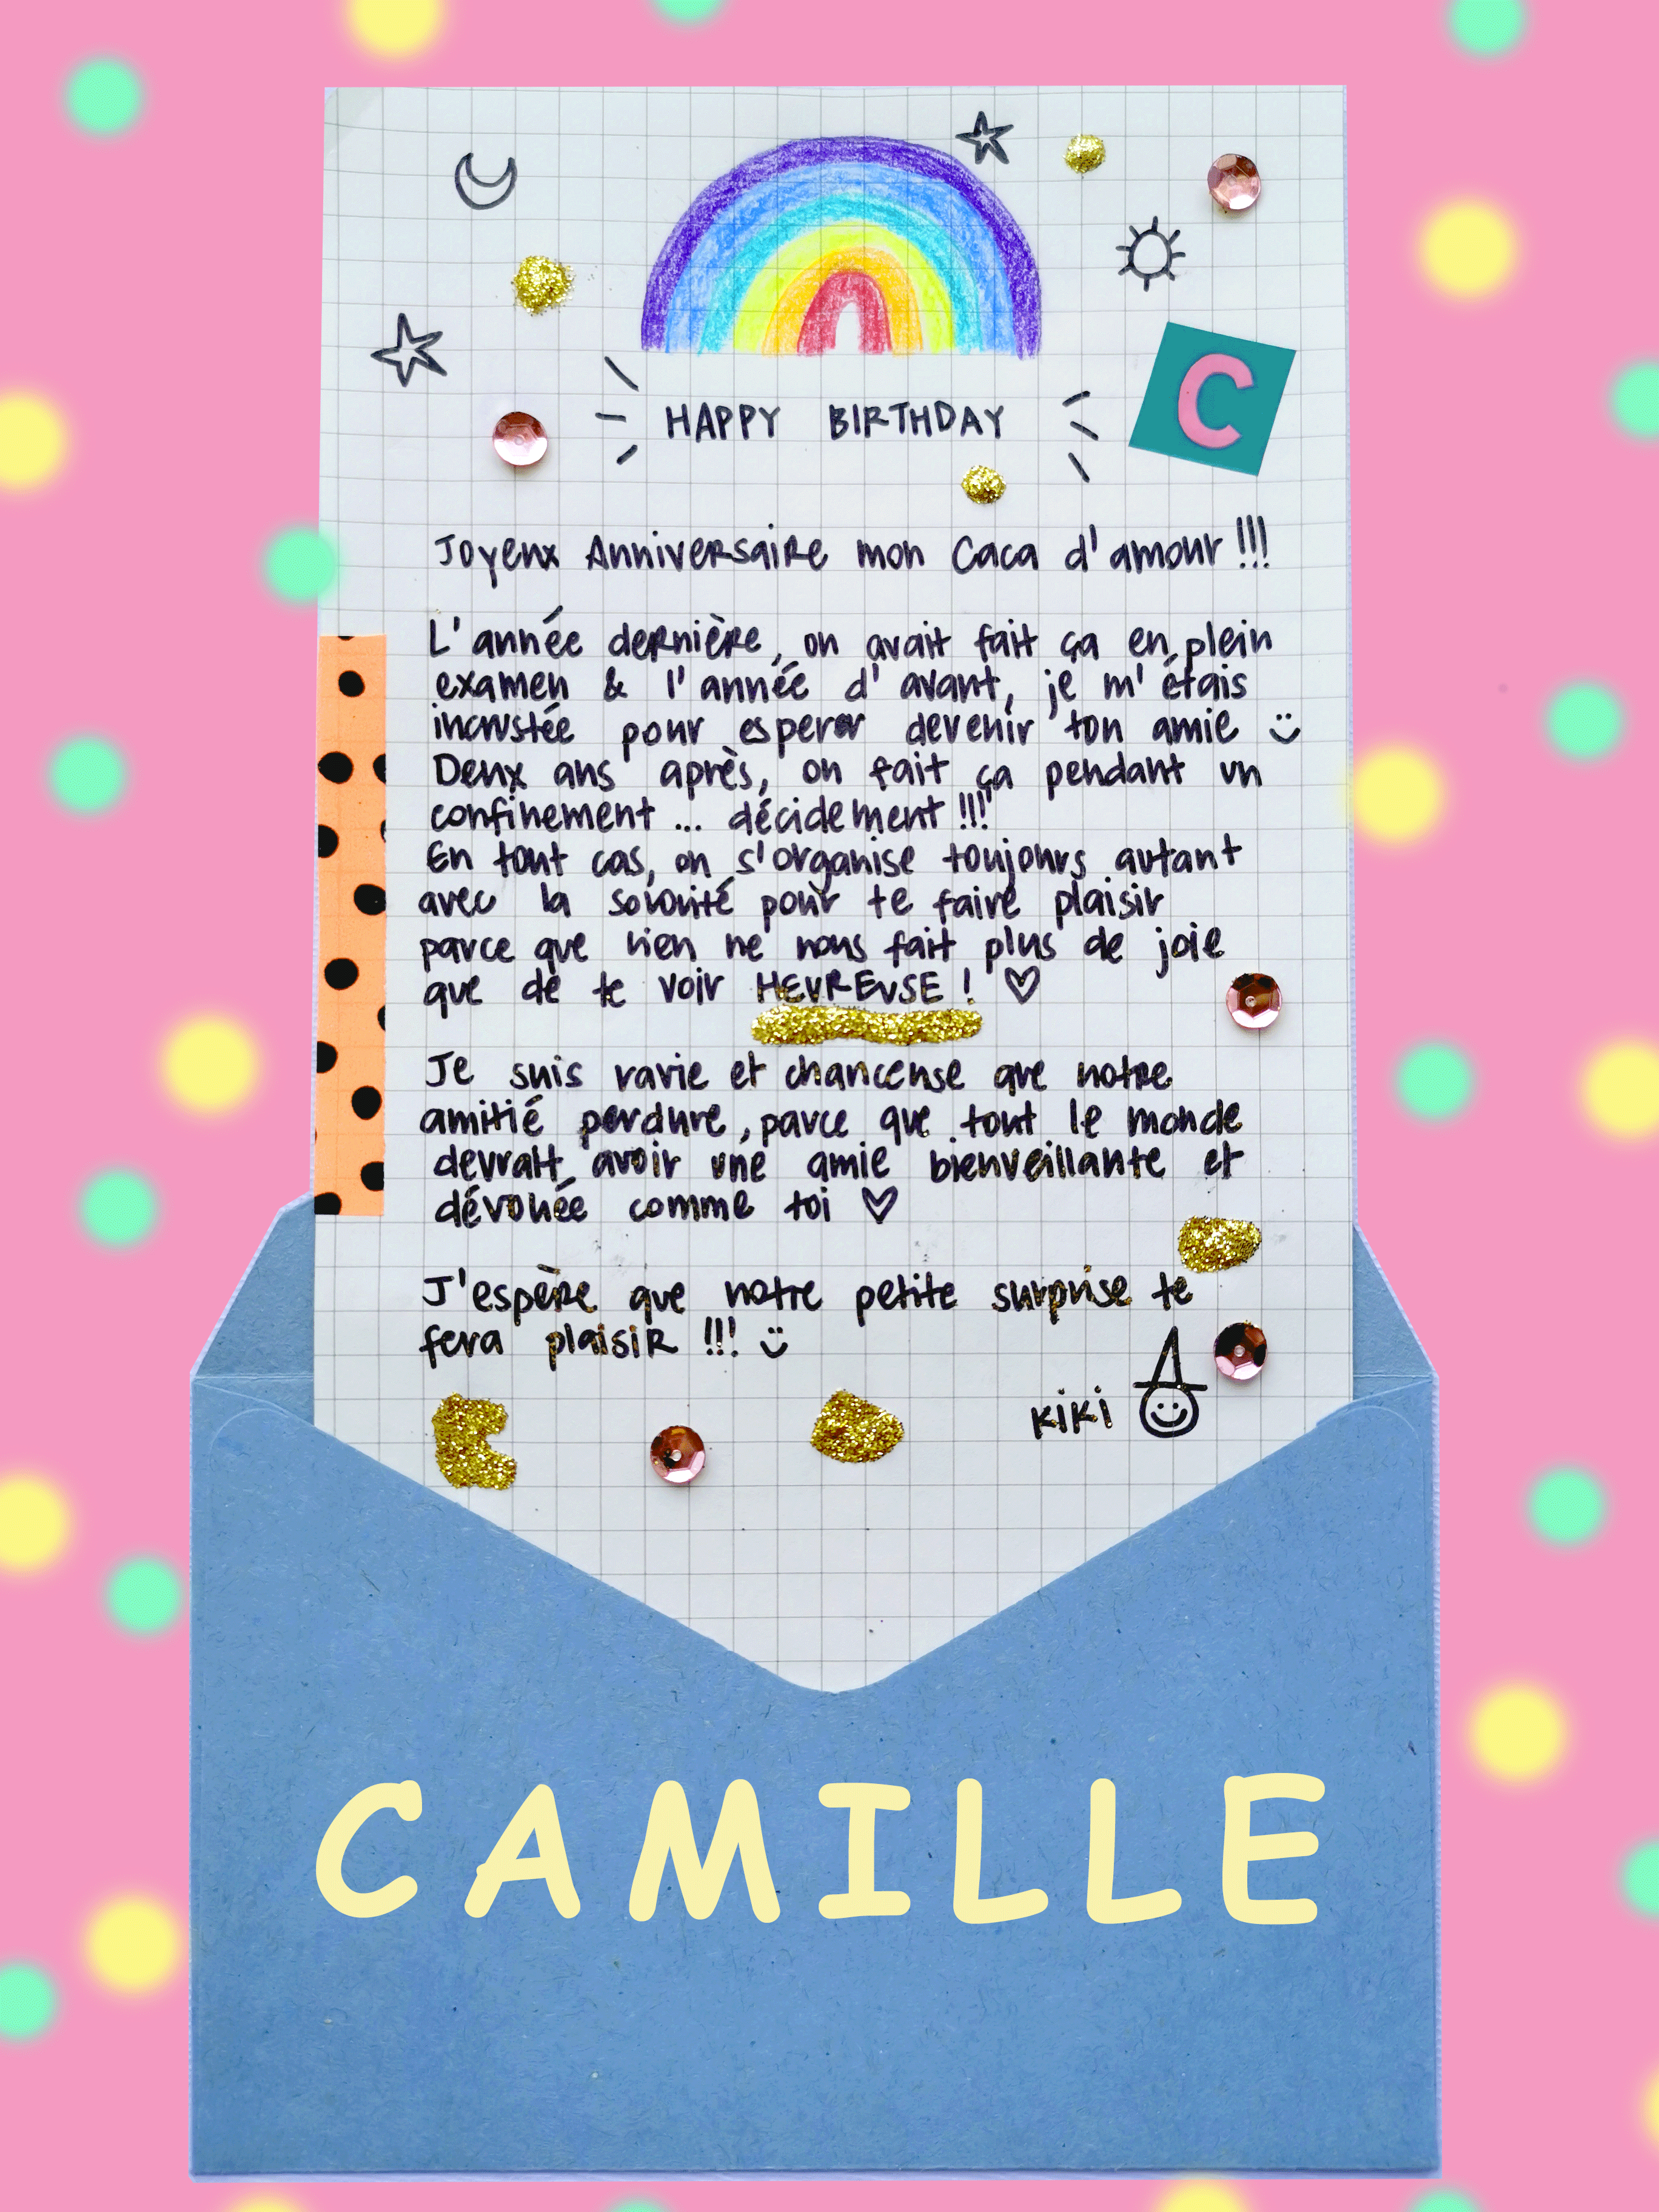 C
HAPPY BIRTHDAY
Joyeux Anniversaire mon Caca d'amour !!!
L'année dernière, on avait fait ça en plein
examen & l'année d'avant, je m'étais
incrustée pour esperer devenir ton amie
Deux ans après, on fait ça pendant un
confinement ... décidement !!!
En tout cas, on s'organise toujours autant
avec la sororité pour te faire plaisir
parce que rien ne nous fait plus de joie
que de te voir HEUREUSE ! ♡
Je suis ravie et chanceuse que notre
amitié perdure, parce que tout le monde
devrait avoir une amie bienveillante et
dévouée comme toi ♡
J'espère que notre petite surprise te
fera plaisir !!!
kiki
CAMILLE